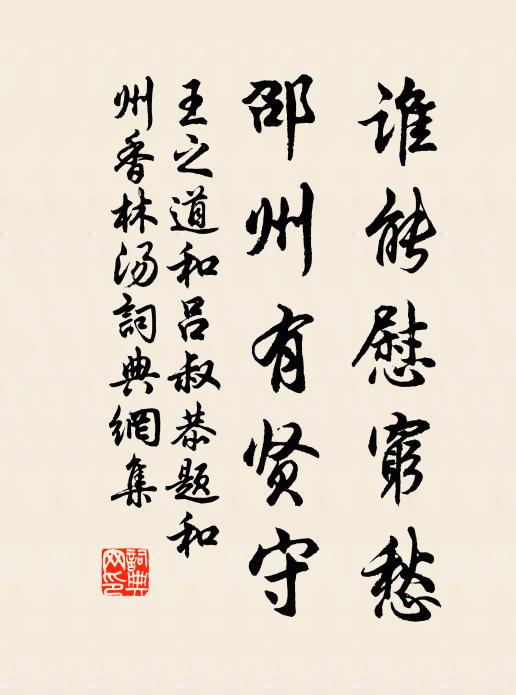 谁能慰穷愁
邵州有贤守
王之道和吕叔恭题和
州香林汤词典網集
詞典网印